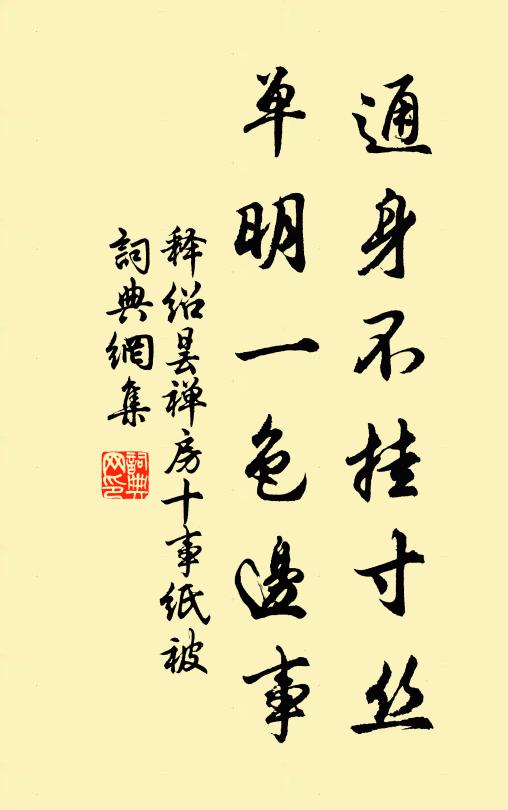 通身不挂寸丝
单明一色邊事
释绍昙禅房十事纸被
詞典網集
詞典
网印